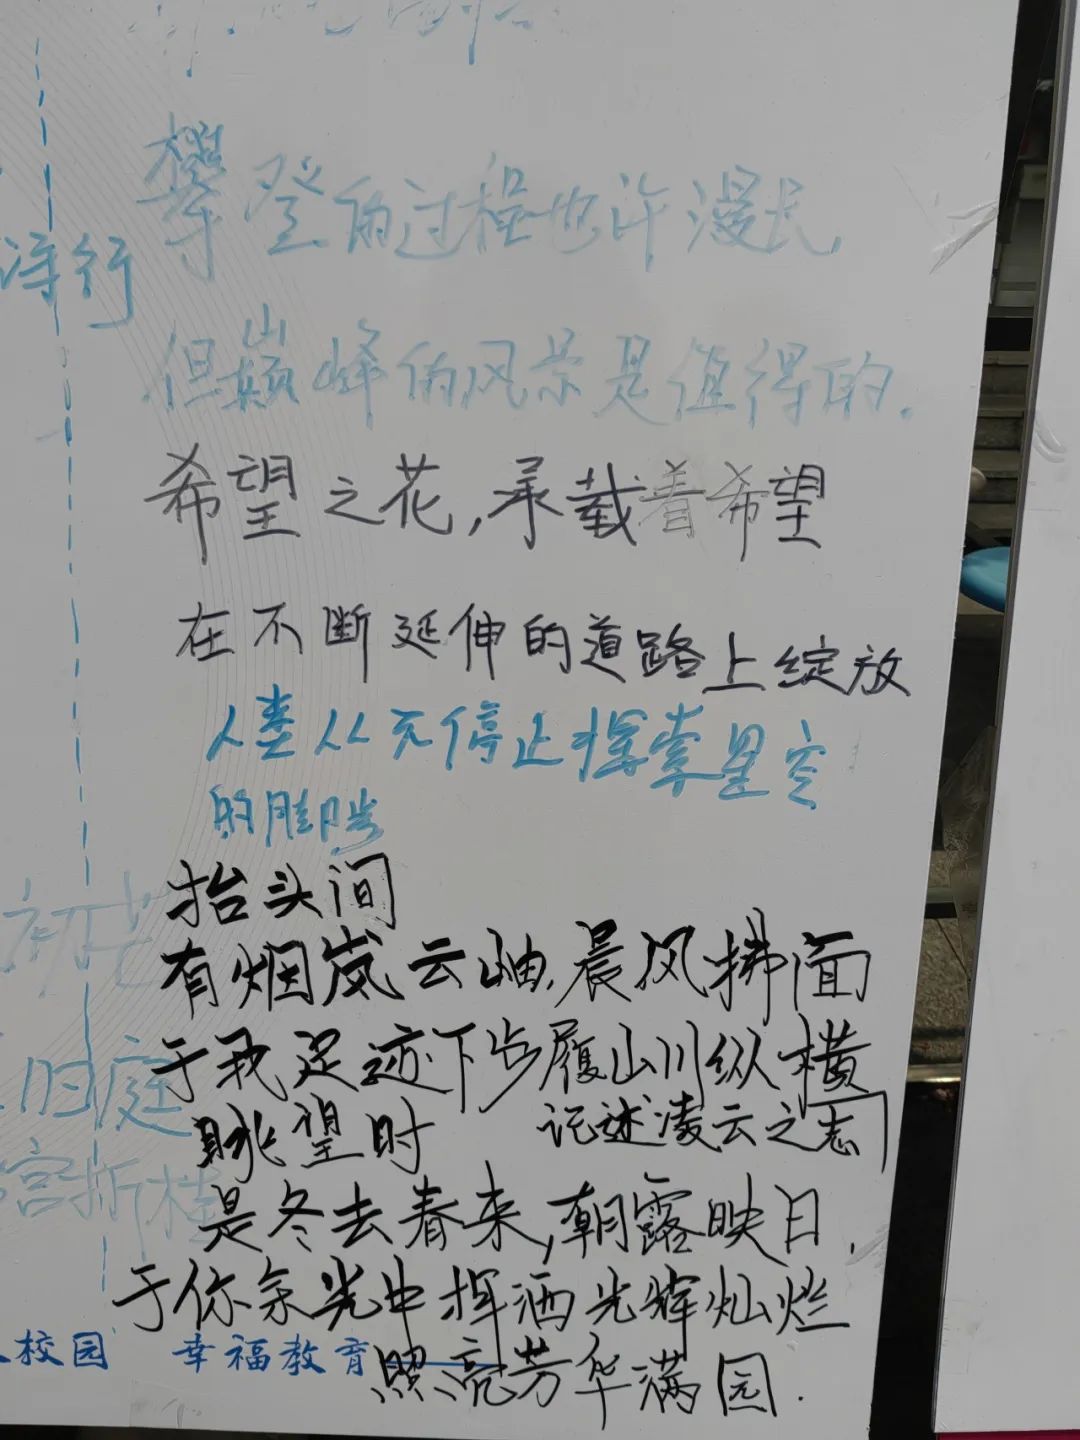 攀登的过程也许漫长,
行
但巅峰的风景是值得的.
希望之花,承载着希望
在不断延伸的道路上绽放
人类从无停止探索星空
的脚步
抬头间
有烟岚云岫,晨风拂面
于我足迹下步履山川纵横
记述凌云之志
眺望时
归庭
宫折桂
是冬去春来,朝露映日,
于你余光中挥洒光辉灿烂
照亮芳华满园.
校园 幸福教育